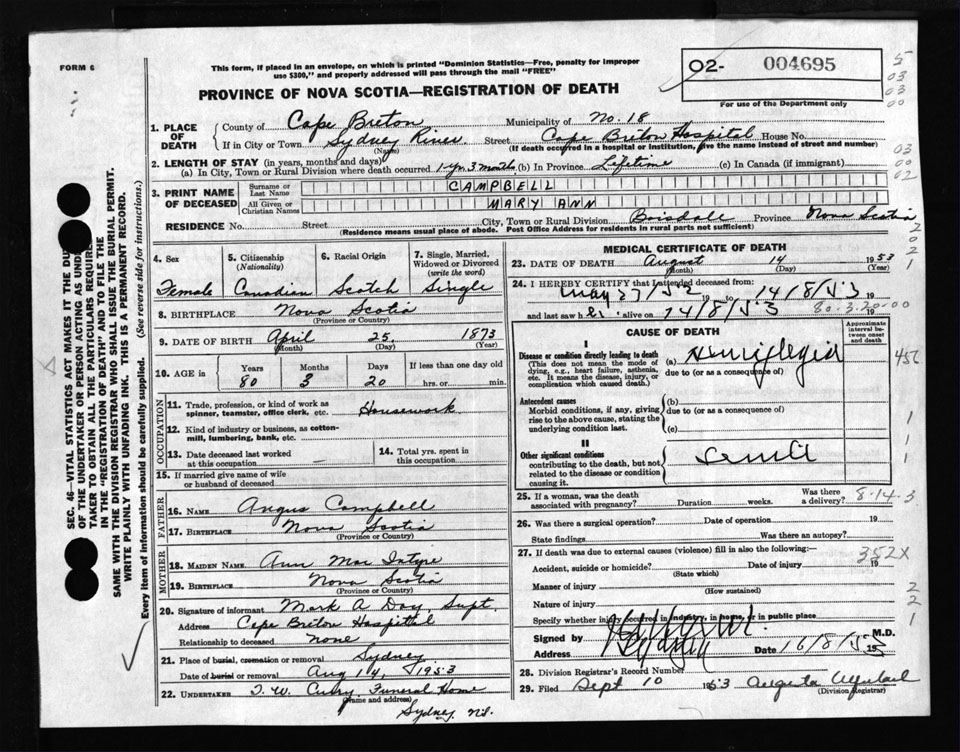 FORM 6
This form, if placed in an envelope, on which is printed "Dominion Statistics—Free, penalty for improper
use $300," and properly addressed will pass through the mail "FREE"
O2- 004695
For use of the Department only
PROVINCE OF NOVA SCOTIA—REGISTRATION OF DEATH
1. PLACE OF DEATH County of Cape Breton Municipality of No. 18
If in City or Town Sydney River Street Cape Breton Hospital House No.
(Name) (If death occurred in a hospital or institution, give the name instead of street and number)
2. LENGTH OF STAY (in years, months and days)
(a) In City, Town or Rural Division where death occurred 1 yr. 3 months (b) In Province Lifetime (c) In Canada (if immigrant)
3. PRINT NAME OF DECEASED Surname or Last Name CAMPBELL
All Given or Christian Names MARY ANN
RESIDENCE No. Street City, Town or Rural Division Boisdale Province Nova Scotia
(Residence means usual place of abode. Post Office Address for residents in rural parts not sufficient)
4. Sex 5. Citizenship (Nationality) 6. Racial Origin 7. Single, Married, Widowed or Divorced (write the word)
Female Canadian Scotch Single
8. BIRTHPLACE Nova Scotia
(Province or Country)
9. DATE OF BIRTH April 25, 1873
(Month) (Day) (Year)
10. AGE in Years Months Days If less than one day old
80 3 20 hrs. or min.
OCCUPATION
11. Trade, profession, or kind of work as spinner, teamster, office clerk, etc. Housework
12. Kind of industry or business, as cotton-mill, lumbering, bank, etc.
13. Date deceased last worked at this occupation 14. Total yrs. spent in this occupation
15. If married give name of wife or husband of deceased
FATHER
16. NAME Angus Campbell
17. BIRTHPLACE Nova Scotia
(Province or Country)
MOTHER
18. MAIDEN NAME Ann Mac Intyre
19. BIRTHPLACE Nova Scotia
(Province or Country)
20. Signature of informant Mark A Day, Supt.
Address Cape Breton Hospital
Relationship to deceased None
21. Place of burial, cremation or removal Sydney
Date of burial or removal Aug 14, 1953
22. UNDERTAKER T. W. Curry, Funeral Home
(Name and address)
Sydney N.S.
MEDICAL CERTIFICATE OF DEATH
23. DATE OF DEATH August 14 1953
(Month) (Day) (Year)
24. I HEREBY CERTIFY that I attended deceased from:
May 27/52 19 to 14/8/53 19
and last saw her alive on 14/8/53 19
80-3-20-00
CAUSE OF DEATH
Approximate interval between onset and death
I
Disease or condition directly leading to death
(This does not mean the mode of dying, e.g., heart failure, asthenia, etc. It means the disease, injury, or complication which caused death.)
(a) Hemiplegia
due to (or as a consequence of)
Antecedent causes
Morbid conditions, if any, giving rise to the above cause, stating the underlying condition last.
(b)
due to (or as a consequence of)
(c)
II
Other significant conditions
contributing to the death, but not related to the disease or condition causing it.
Senile
25. If a woman, was the death associated with pregnancy? Duration weeks. Was there a delivery?
8-14-3
26. Was there a surgical operation? Date of operation 19
State findings Was there an autopsy?
27. If death was due to external causes (violence) fill in also the following:—
352X
Accident, suicide or homicide? Date of injury 19
(State which)
Manner of injury
(How sustained)
Nature of injury
Specify whether injury occurred in industry, in home, or in public place
Signed by M.D.
Address Date 16/8/53
28. Division Registrar's Record Number
29. Filed Sept 10 1953
(Division Registrar)
SEC. 46—VITAL STATISTICS ACT MAKES IT THE DU
OF THE UNDERTAKER OR PERSON ACTING AS UNDE
TAKER TO OBTAIN ALL THE PARTICULARS REQUIRE
IN THE "REGISTRATION OF DEATH" AND TO FILE THE
SAME WITH THE DIVISION REGISTRAR WHO SHALL ISSUE THE BURIAL PERMIT.
WRITE PLAINLY WITH UNFADING INK. THIS IS A PERMANENT RECORD.
Every item of information should be carefully supplied. (See reverse side for instructions.)